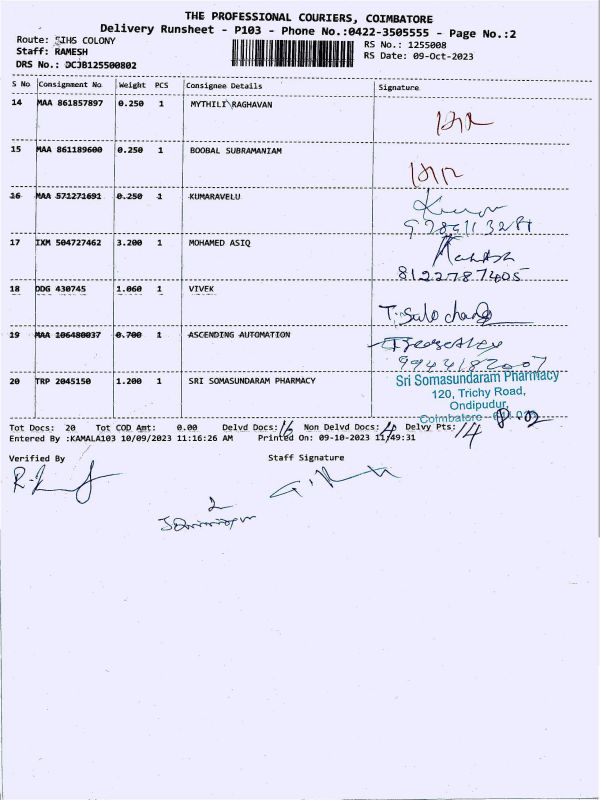 THE PROFESSIONAL COURIERS, COIMBATORE
Delivery Runsheet - P103 - Phone No.:0422-3505555 - Page No.:2
Route: SIHS COLONY
RS No.: 1255008
Staff: RAMESH
RS Date: 09-Oct-2023
DRS No.: DCJB125500802
S No Consignment No Weight PCS Consignee Details Signature
14 MAA 861857897 0.250 1 MYTHILI RAGHAVAN
15 MAA 861189600 0.250 1 BOOBAL SUBRAMANIAM
16 MAA 571271691 0.250 1 KUMARAVELU
17 IXM 504727462 3.200 1 MOHAMED ASIQ
8122787405
18 DDG 430745 1.060 1 VIVEK
19 MAA 106480037 0.700 1 ASCENDING AUTOMATION
9944182007
20 TRP 2045150 1.200 1 SRI SOMASUNDARAM PHARMACY
Sri Somasundaram Pharmacy
120, Trichy Road,
Ondipudur,
Coimbatore
Tot Docs: 20 Tot COD Amt: 0.00 Delvd Docs: 16 Non Delvd Docs: 4 Delvy Pts: 14
Entered By :KAMALA103 10/09/2023 11:16:26 AM Printed On: 09-10-2023 11:49:31
Verified By Staff Signature